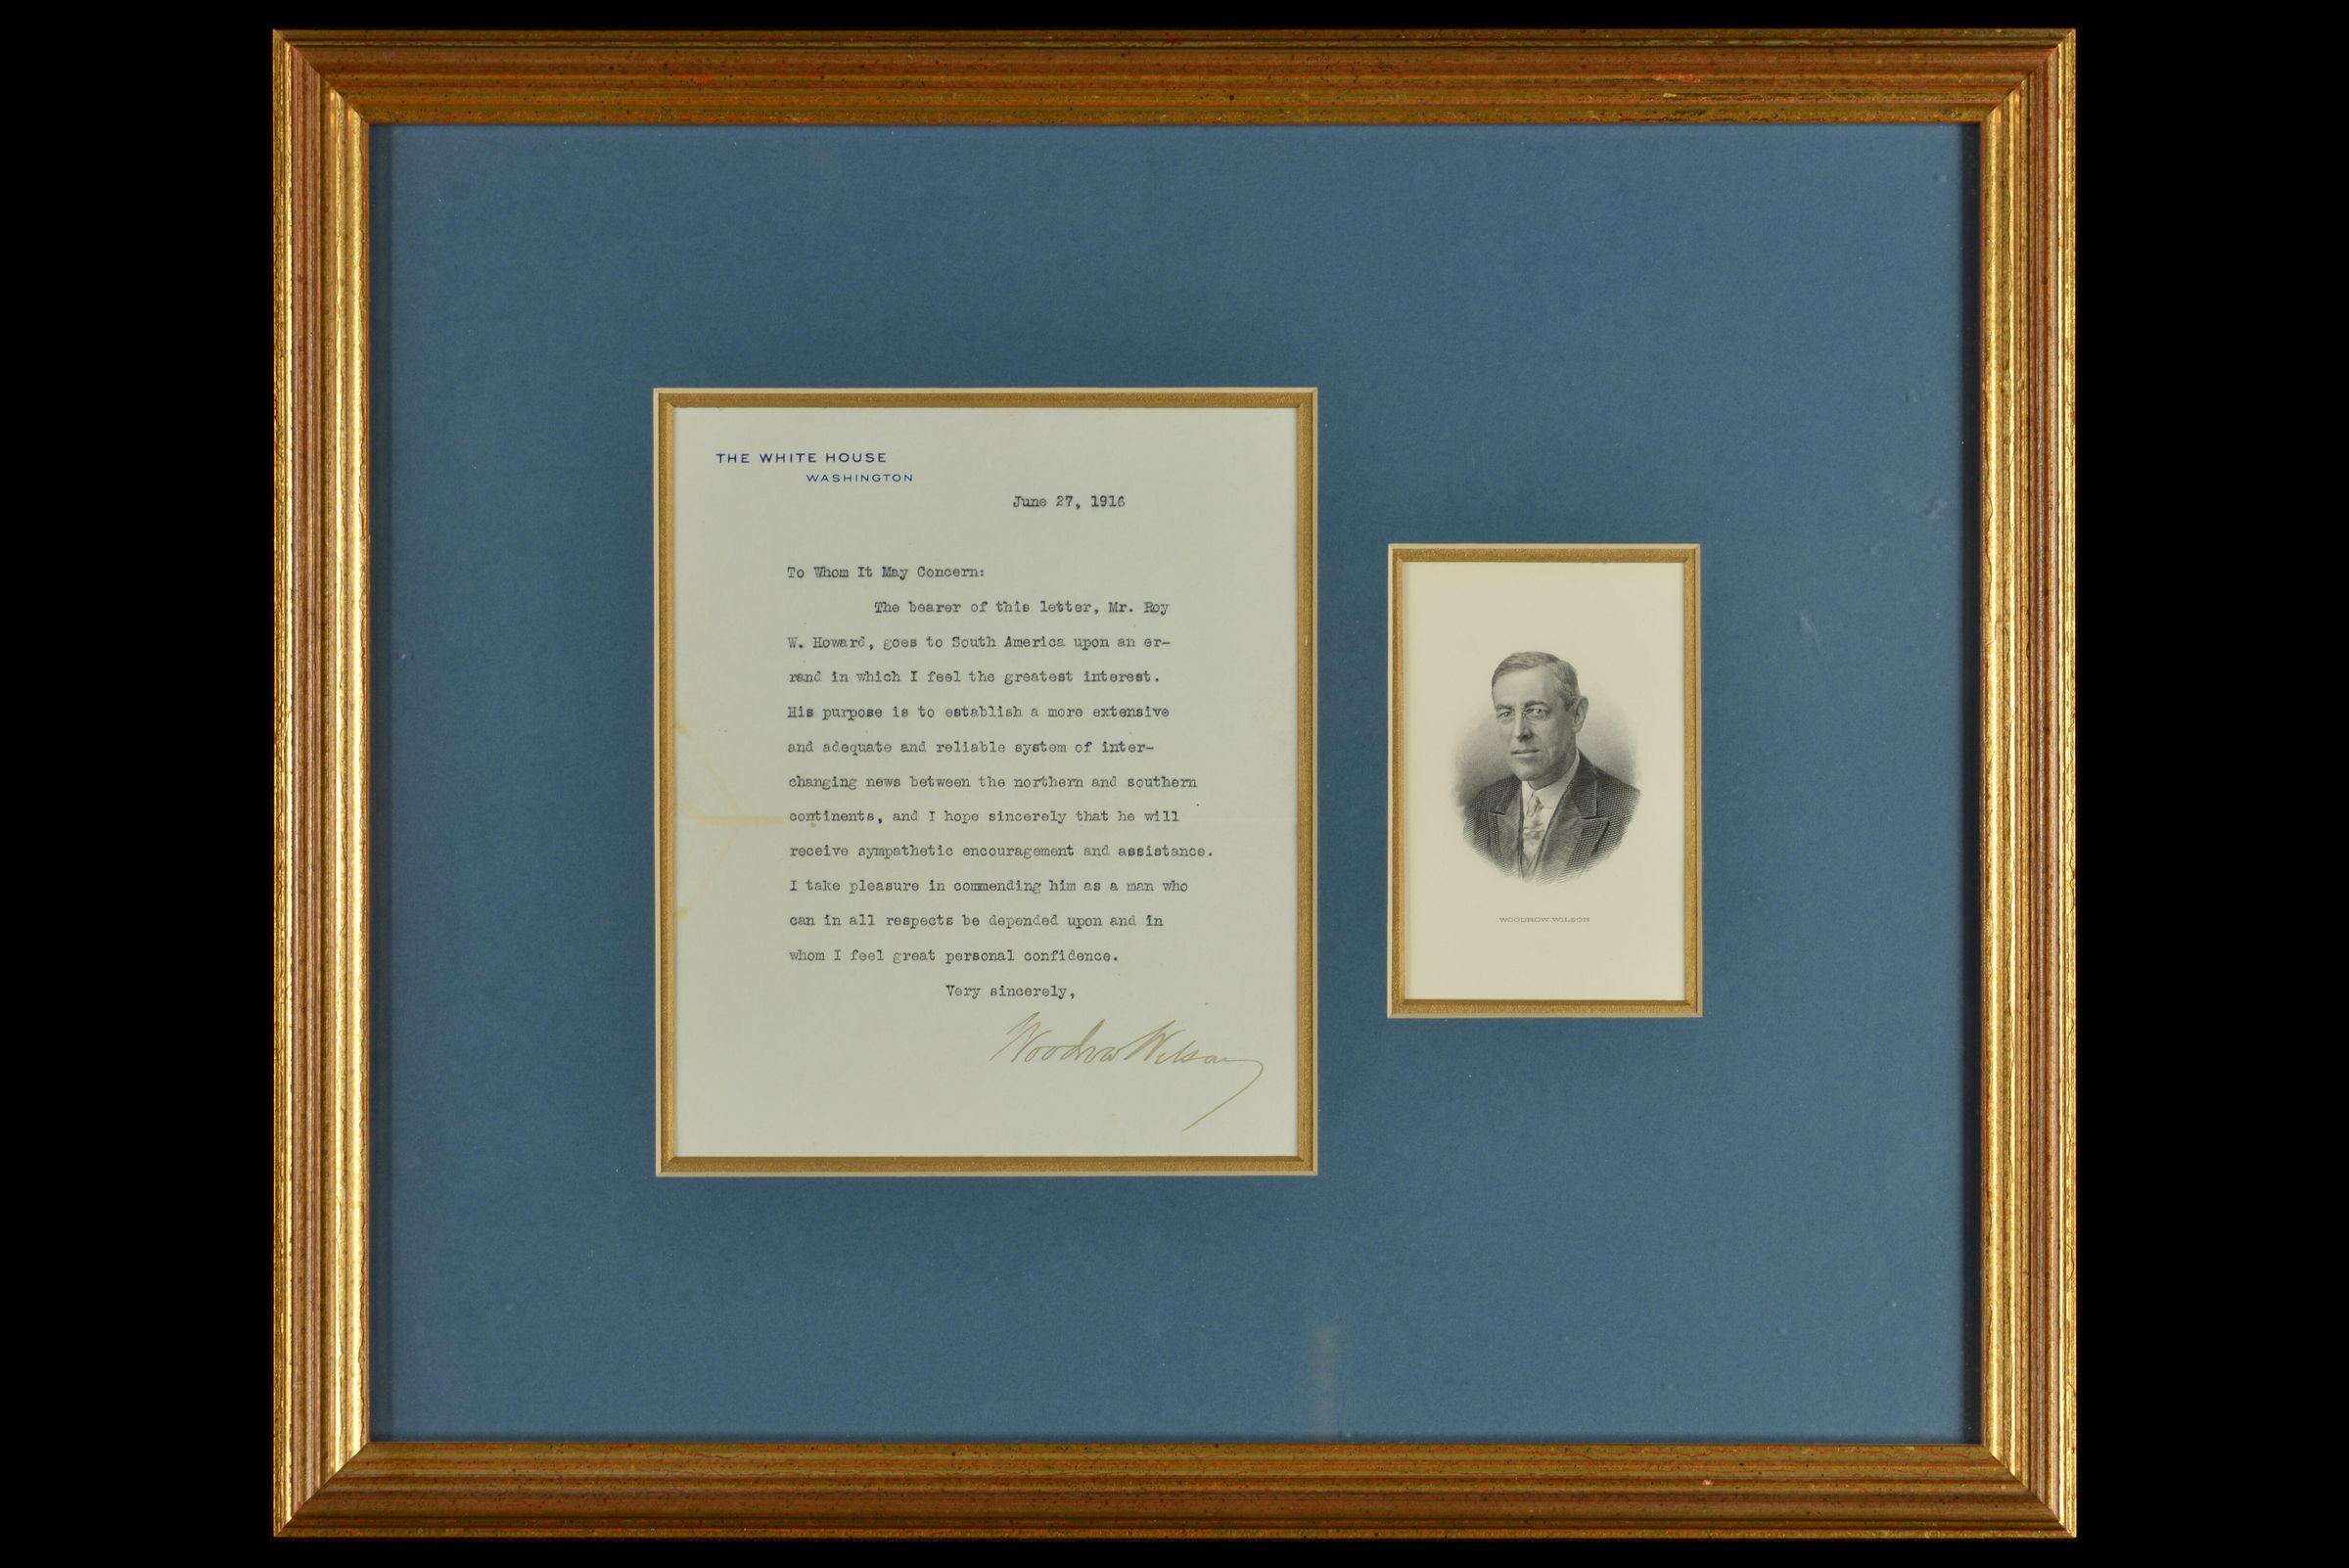 THE WHITE HOUSE
WASHINGTON
June 27, 1916
To Whom It May Concern:
The bearer of this letter, Mr. Roy
W. Howard, goes to South America upon an er-
rand in which I feel the greatest interest.
His purpose is to establish a more extensive
and adequate and reliable system of inter-
changing news between the northern and southern
continents, and I hope sincerely that he will
receive sympathetic encouragement and assistance.
I take pleasure in commending him as a man who
can in all respects be depended upon and in
whom I feel great personal confidence.
Very sincerely,
Woodrow Wilson
WOODROW WILSON